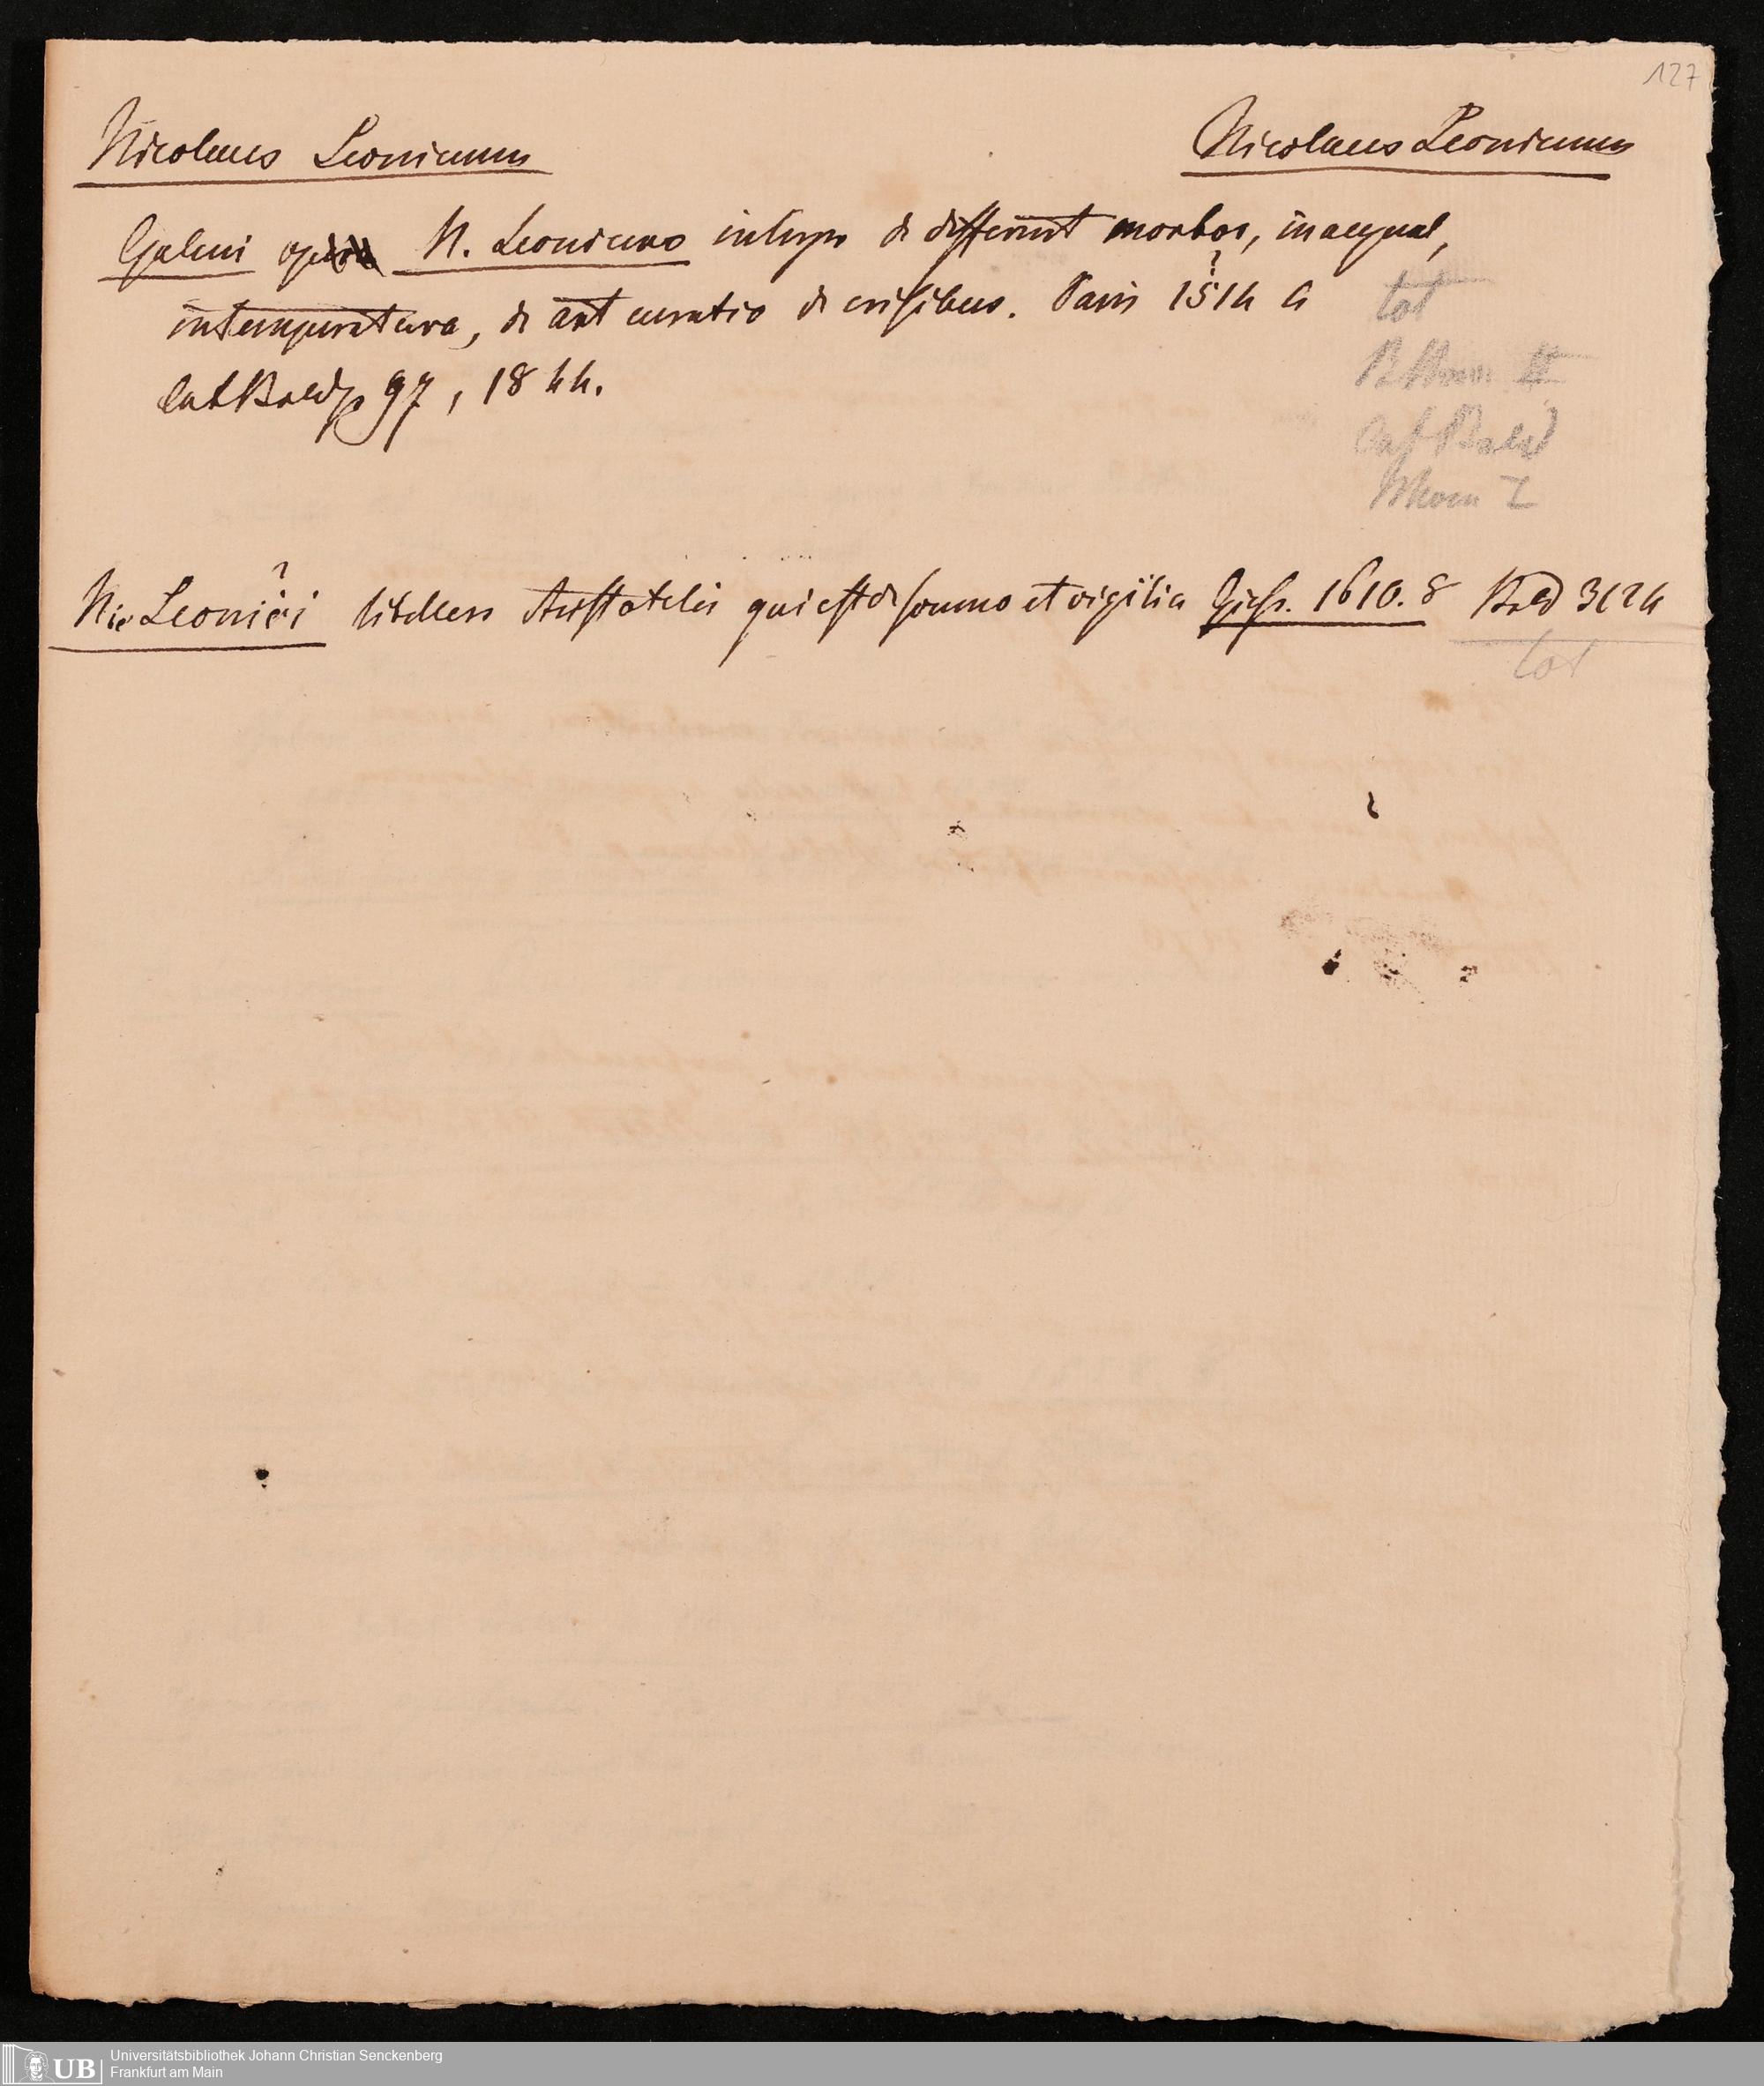 127
Nicolaus Leonicenus
Nicolaus Leonicenus
Galeni opera N. Leoniceno interpr de different morbor, inaequal,
intemperatura, de art curativ de crisibus. Paris 1514 4
tot
Cat Bald p 97, 1844.
Cat Bald
I
Nic Leonici ? libellus Aristotelis qui est de somno et vigilia Giess. 1610. 8 Bald 3624
tot
UB Universitätsbibliothek Johann Christian Senckenberg
Frankfurt am Main